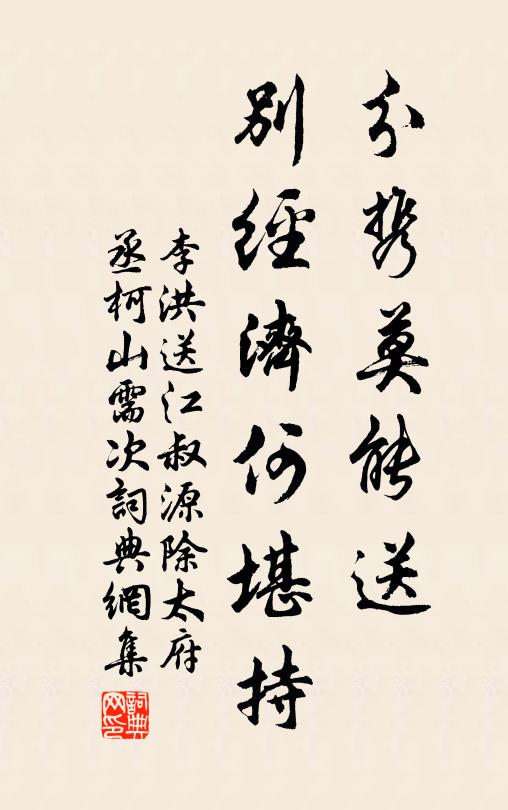 分携莫能送
別經濟何堪持
李洪送江叔源除太府
丞柯山需次詞典網集
詞典網印